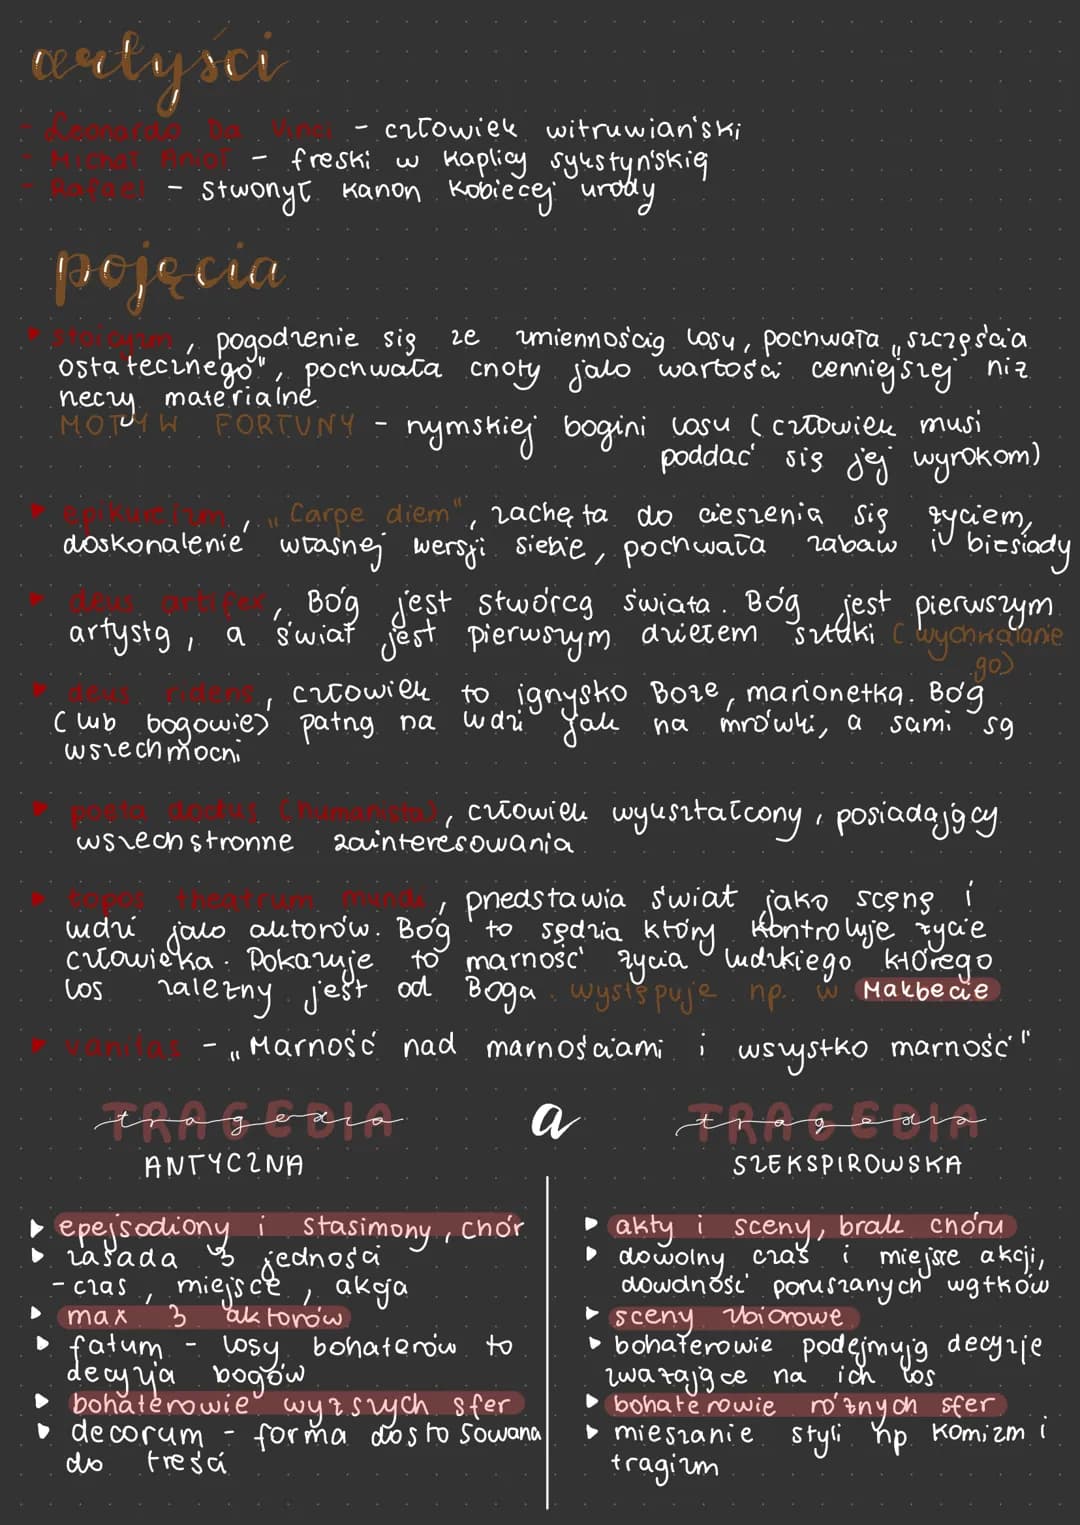 artyści
- Leonardo Da Vinci - człowiek witruwiański
- Michał Anioł - freski w kaplicy sykstyńskią
- Rafael - stworzył kanon kobiecej urody
pojęcia
▸ stoicyzm, pogodzenie się ze zmiennością losu, pochwała „szczęścia
ostatecznego", pochwała cnoty jako wartości cenniejszej niż
rzeczy materialne
MOTYW FORTUNY - rzymskiej bogini losu (człowiek musi
poddać się jej wyrokom)
▸ epikureizm, „Carpe diem", zachęta do cieszenia się życiem,
doskonalenie własnej wersji siebie, pochwała zabaw i biesiady
▸ deus artifex, Bóg jest stwórcą świata. Bóg jest pierwszym
artystą, a świat jest pierwszym dziełem sztuki (wychwalanie
go)
▸ deus ridens, człowiek to igrzysko Boże, marionetka. Bóg
(lub bogowie) patrzą na ludzi jak na mrówki, a sami są
wszechmocni
▸ poeta doctus (humanista), człowiek wykształcony, posiadający
wszechstronne zainteresowania
▸ topos theatrum mundi, przedstawia świat jako scenę i
ludzi jako aktorów. Bóg to sędzia który kontroluje życie
człowieka. Pokazuje to marność życia ludzkiego którego
los zależny jest od Boga. występuje np. w Makbecie
▸ vanitas - „Marność nad marnościami i wszystko marność"
TRAGEDIA tragedia a TRAGEDIA tragedia
ANTYCZNA SZEKSPIROWSKA
▸ epejsodiony i stasimony, chór
▸ zasada 3 jedności
- czas, miejsce, akcja
▸ max 3 aktorów
▸ fatum - losy bohaterów to
decyzja bogów
▸ bohaterowie wyższych sfer
▸ decorum - forma dostosowana
do treści
▸ akty i sceny, brak chóru
▸ dowolny czas i miejsce akcji,
dowolność poruszanych wątków
▸ sceny zbiorowe
▸ bohaterowie podejmują decyzje
zważające na ich los
▸ bohaterowie różnych sfer
▸ mieszanie styli np komizm i
tragizm